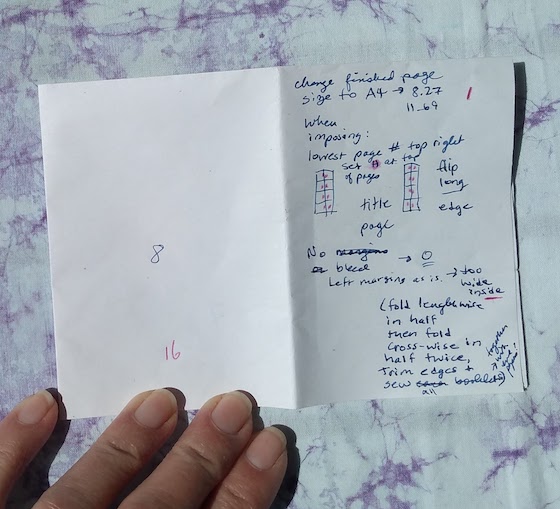 8
16
change finished page
size to A4 → 8.27
11.69
1
When
imposing:
lowest page # top right
set # at top
of pages
flip
long
edge
title
page
No margins → 0
or bleed
Left margins as is. → too
wide
inside
(fold lengthwise
in half
then fold
cross-wise in
half twice,
trim edges +
sew each booklet)
all
together